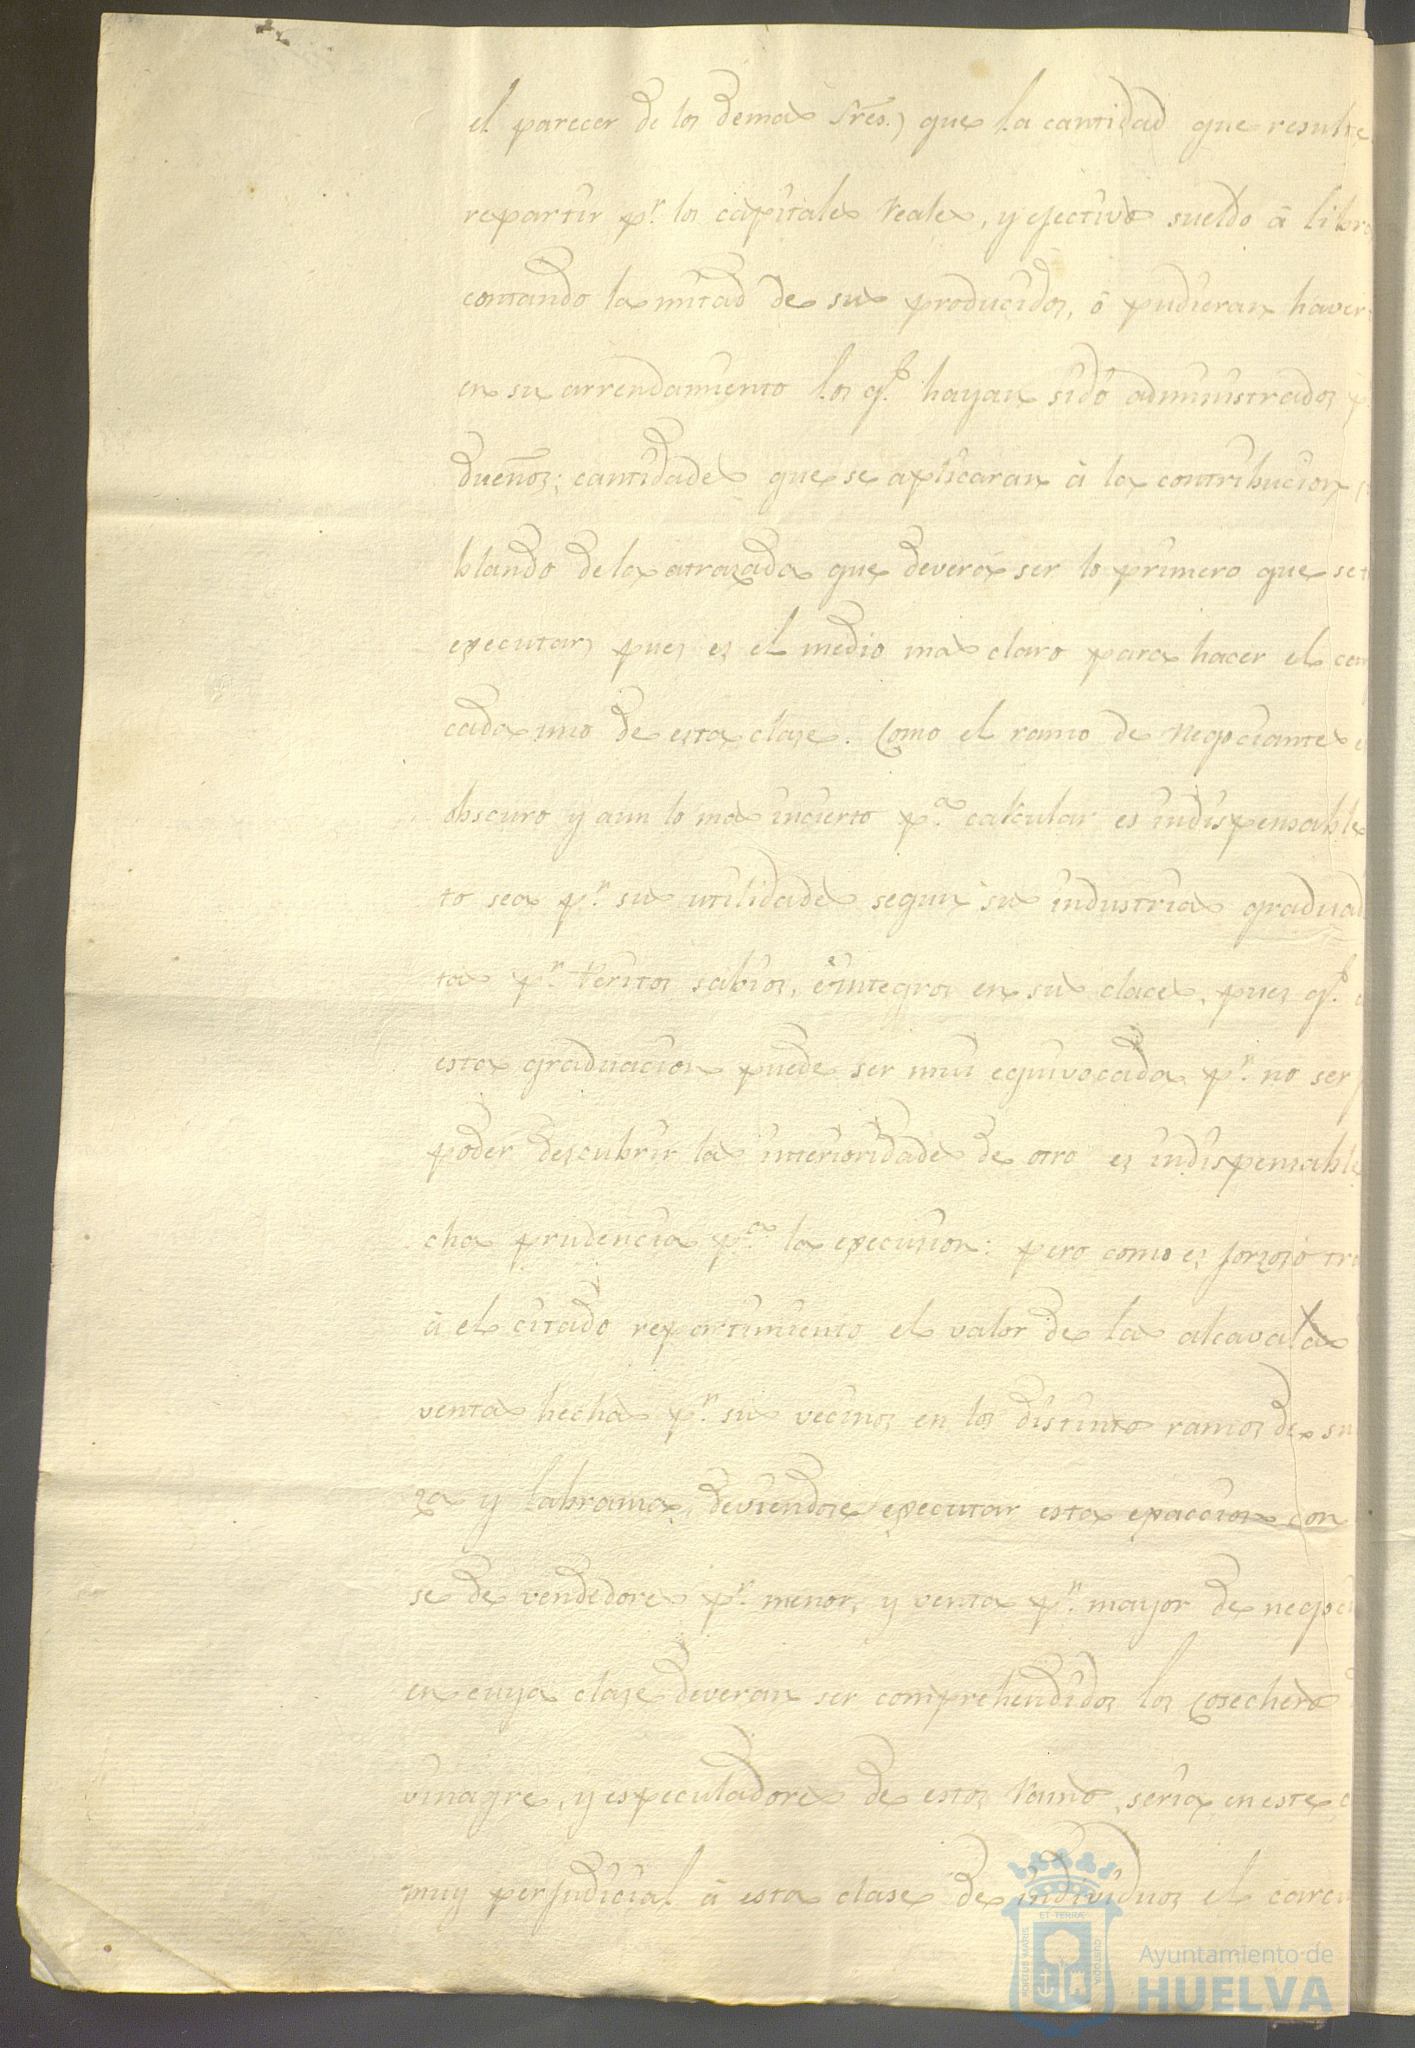 el parecer de los demas Sres., que la cantidad que resulte
repartir pr. los capitales reales, y efectivos sueldo á libra
contando la mitad de sus producidos, ó pudieran haver
en su arrendamiento los qe. hayan sido administrados p
dueños; cantidades que se aplicaran á la contribucion
blando de la atrazada que deverá ser lo primero que se
executar, pues es el medio mas claro para hacer el
cada uno de esta clase. Como el ramo de Negociantes
obscuro y aun lo mas incierto pa. calcular es indispensable
to sea pr. sus utilidades segun su industria graduad
ta pr. Peritos sabios, é integros en sus claces, pues qe.
esta graduacion puede ser mui equivocada, pr. no ser
poder descubrir las interioridades de otro es indispensable
cha prudencia pa. la execusion: pero como es forzoso tr
á el citado repartimiento el valor de la alcavala
ventas hechas pr. sus vecinos en los distintos ramos de su
za y labranza, deviendose executar esta exaccion con
se de vendedores pr. menor, y ventas pr. mayor de negoci
en cuya clase deveran ser comprehendidos los Cosecheros
vinagre, y especuladores de estos ramos, seria en este
muy perjudicial á esta clase de individuos el
ET TERRÆ
PORTUS MARIS
CUSTODIA
Ayuntamiento de
HUELVA